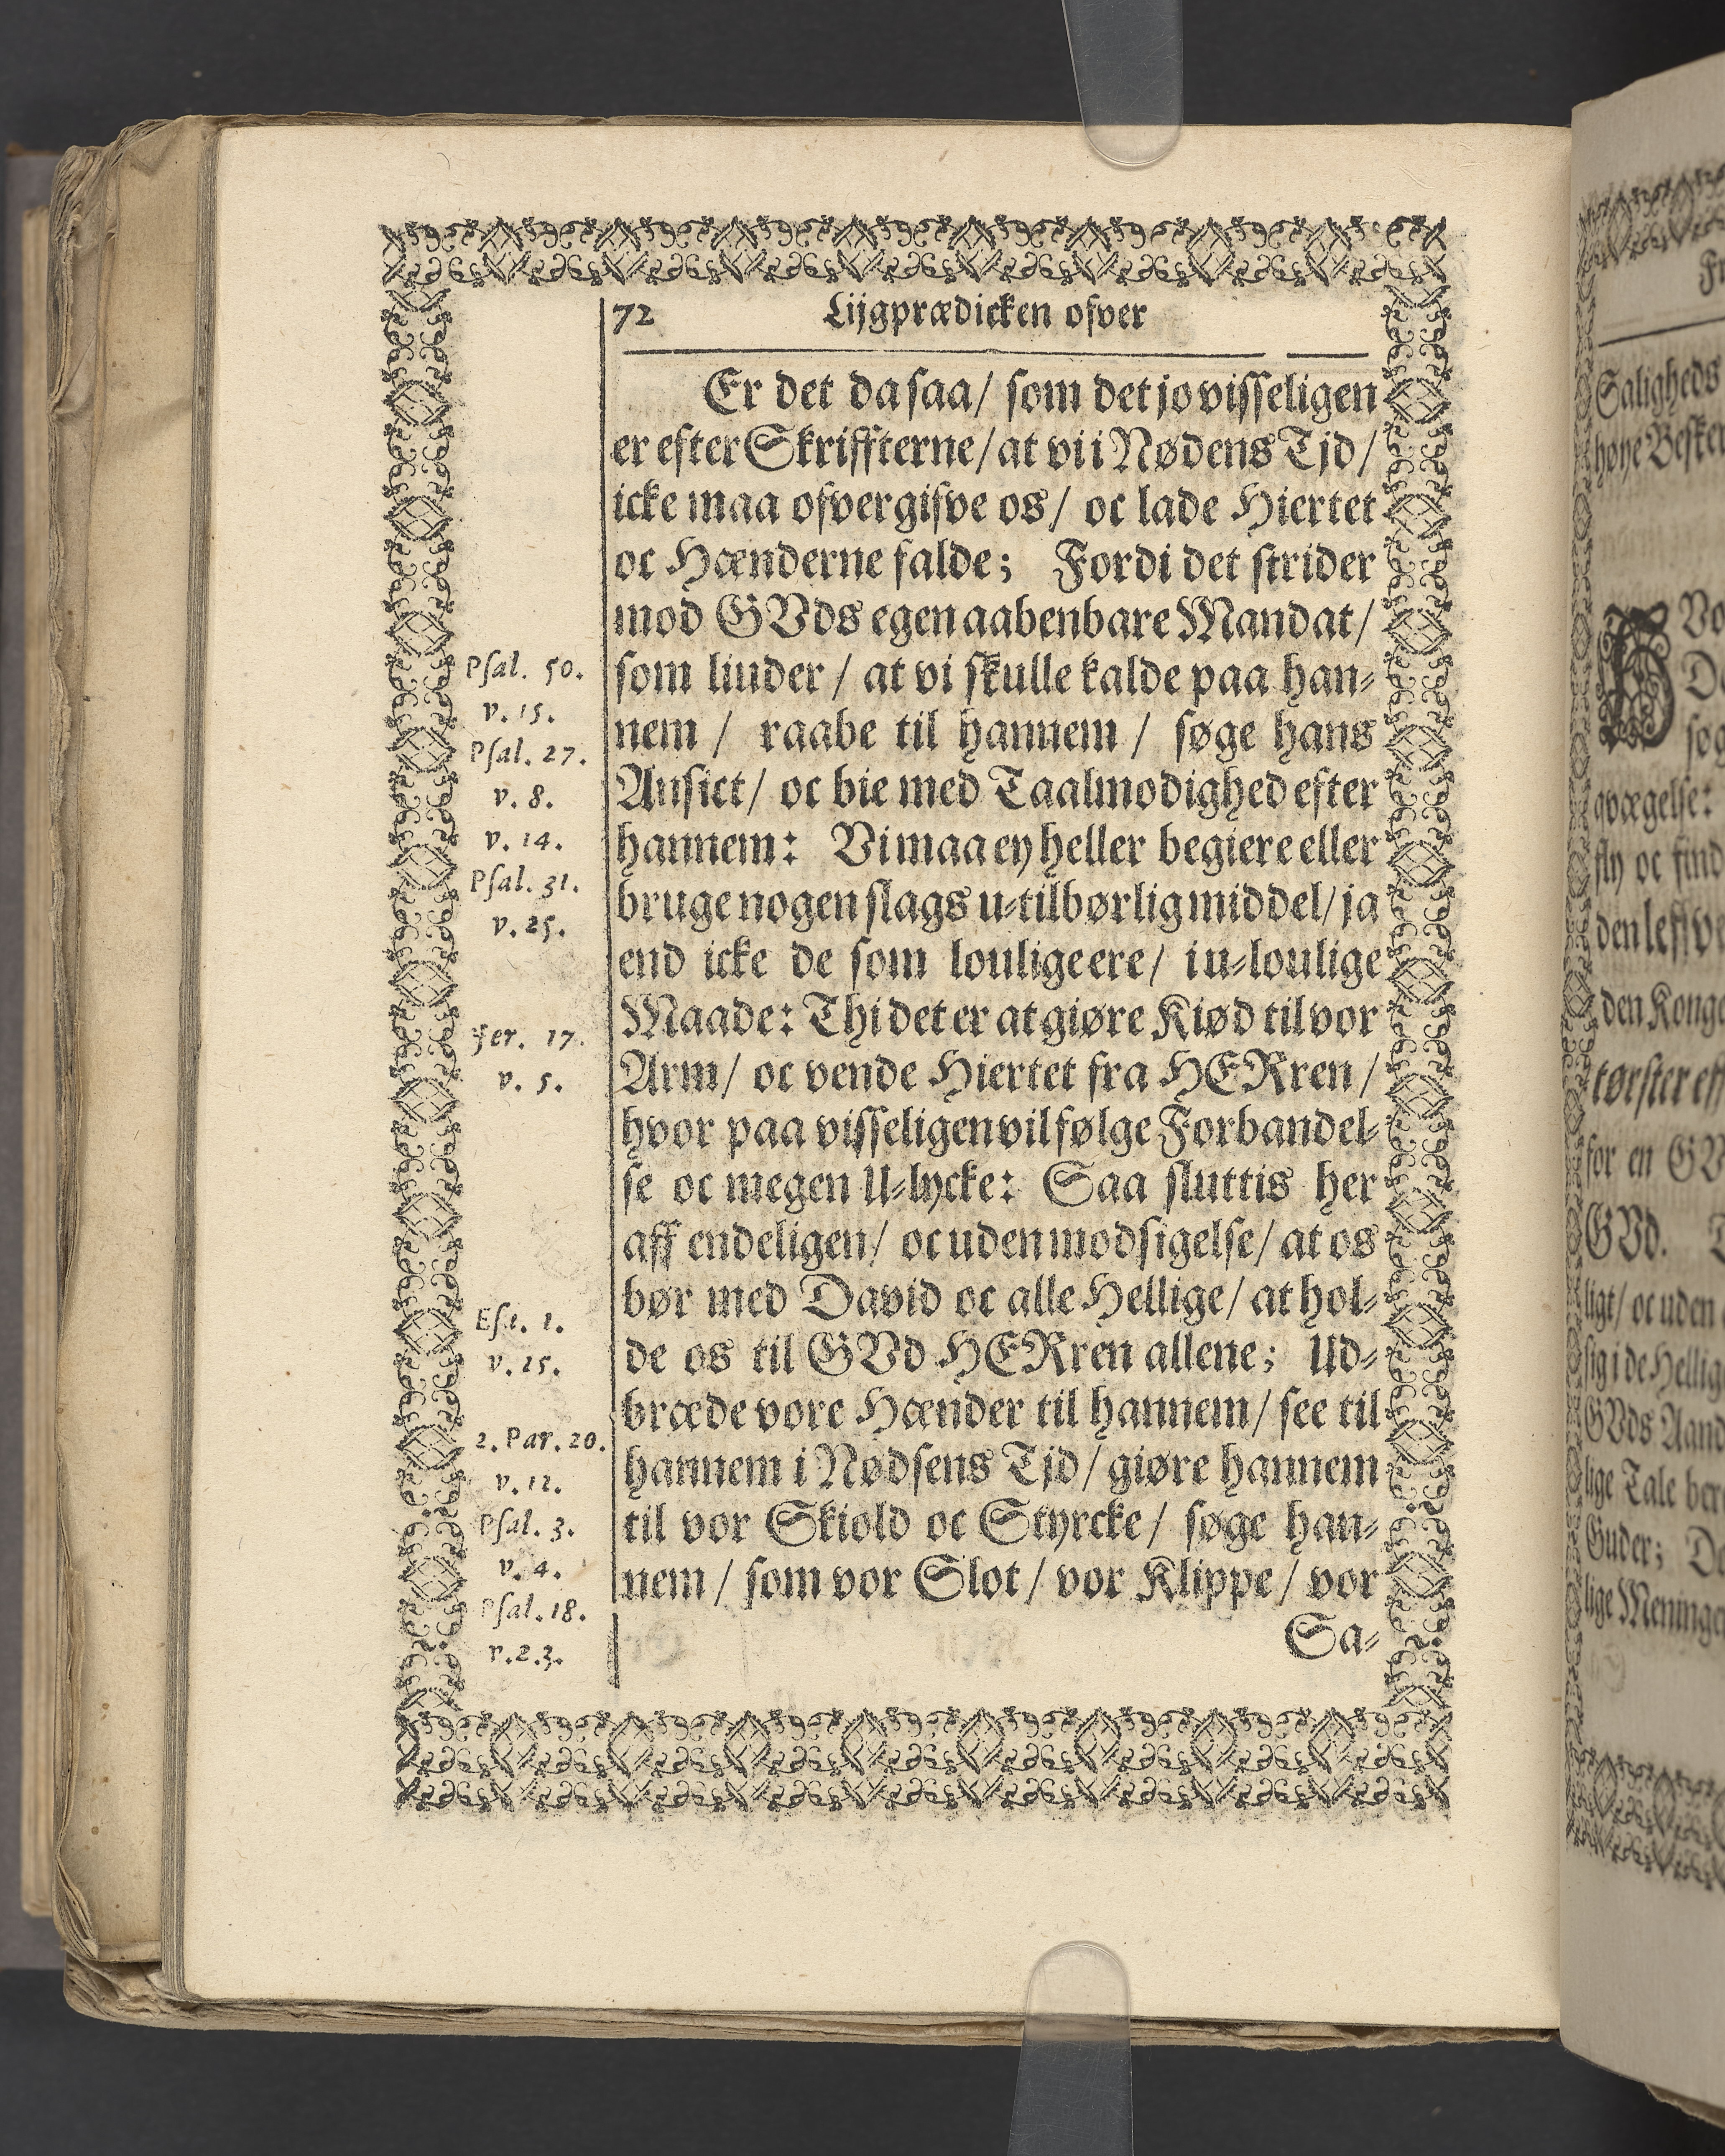 72 Lijgprædicken ofver
Er det da saa/ som det jo visseligen
er efter Skriffterne/ at vi i Nødens Tjd/
icke maa ofvergifve os/ oc lade Hiertet
oc Hænderne falde; Fordi det strider
mod GVds egen aabenbare Mandat/
som liuder/ at vi skulle kalde paa han-
nem/ raabe til hannem/ søge hans
Ansict/ oc bie med Taalmodighed efter
hannem: Vi maa ey heller begiere eller
bruge nogen slags u-tilbørlig middel/ ja
end icke de som louligeere/ i u-loulige
Maade: Thi det er at giøre Kiød til vor
Arm/ oc vende Hiertet fra HERren/
hvor paa visseligen vil følge Forbandel-
se oc megen U-lycke: Saa sluttis her
aff endeligen/ oc uden modsigelse/ at os
bør med David oc alle Hellige/ at hol-
de os til GVd HERren allene; Ud-
bræde vore Hænder til hannem/ see til
hannem i Nødsens Tjd/ giøre hannem
til vor Skiold oc Styrcke/ søge han-
nem/ som vor Slot/ vor Klippe/ vor
Sa-
Psal. 50.
v. 15.
Psal. 27.
v. 8.
v. 14.
Psal. 31.
v. 25.
Jer. 17.
v. 5.
Esa. 1.
v. 15.
2. Par. 20.
v. 12.
Psal. 3.
v. 4.
Psal. 18.
v. 2.3.
Saligheds
høye
GVd.
den Konge
for en
ligt/ oc uden
GVds Aand
lige Tale
Guder;
lige Meninge